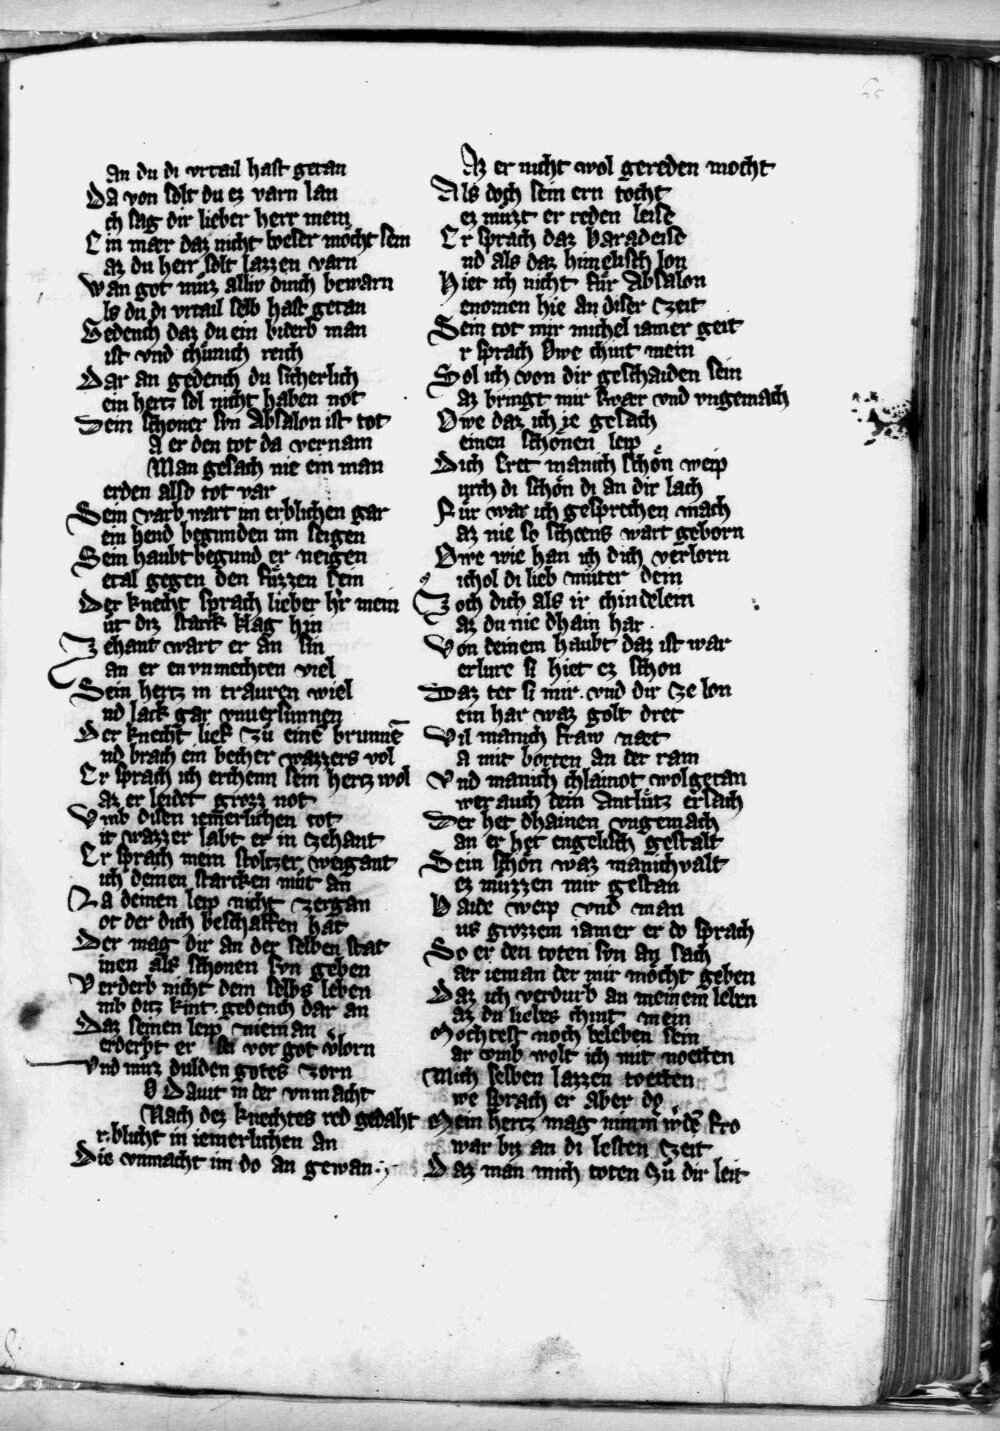 an du di vrtail hast getan
Da von solt du ez varn lan
ch sag dir lieber herr mein
Ein mær daz nicht weser möcht sein
az du herr solt lazzen varn
Wan got muz alliv dinch bewarn
ls du di vrtail selb hast getan
Gedench daz du ein biderb man
ist vnd chünich reich
Dar an gedench du sicherlich
ein hertz sol nicht haben not
Dein schoner syn Absalon ist tot
a er den tot da vernam
Man gesach nie ein man
erden also tot var
Sein varb wart im erblichen gar
ein hend begunden im seigen
Sein haubt begund er neigen
etal gegen den füzzen sein
Der knecht sprach lieber hr mein
üt diz starck klag hin
Zehant wart er an sin
an er en vnmechten viel
Sein hertz in trauren wiel
nd lack gar vnuersunnen
Der knecht lief zü eine brunne
nd brach ein becher wazzers vol
Er sprach ich erchenn sein hertz wol
az er leidet grozz not
Vmb disen iemerlichen tot
it wazzer labt er in zehant
Er sprach mein stoltzer weigant
ich deinen starcken müt an
La deinen leip nicht zergan
ot der dich beschaffen hat
Der mag dir an der selben stat
inen als schonen syn geben
Verderb nicht dein selbs leben
mb ditz kint. gedench dar an
Daz seinen leip nieman
erderpt er sei vor got vlorn
Vnd muz dulden gotes zorn
o Dauit in der vnmacht
Nach dez knechtes red gedaht
r blicht in iemerlichen an
Die vnmacht im do an gewan
Az er nicht wol gereden mocht
Als doch sein ern tocht
ez müzt er reden leise
Er sprach daz Paradeise
nd als daz himelisch lon
Hiet ich nicht für Absalon
enomen hie an diser zeit
Sein tot mir michel iamer geit
r sprach Owe chint mein
Sol ich von dir geschaiden sein
az bringt mir swær vnd vngemach
Owe daz ich ie gesach
einen schönen leip
Dich fret manich schön weip
urch di schön di an dir lach
Für war ich gesprechen mach
az nie so schoens wart geborn
Owe wie han ich dich verlorn
ichol di lieb müter dein
Zoch dich als ir chindelein
az du nie dhain har
Von deinem haubt daz ist war
erlure si hiet ez schon
Daz tet si mir. vnd dir ze lon
ein har waz golt dret
Vil manich fraw næt
a mit borten an der ram
Vnd manich chlainot wolgetan
wer auch dein Antlütz ersach
Der het dhainen vngemach
an er het engelisch gestalt
Sein schön waz manichvalt
ez müzzen mir gestan
Baide weip vnd man
us grozzem iamer er do sprach
So er den toten syn an sach
aer ieman der mir möcht geben
Daz ich verdurb an meinem leben
az du liebes chint mein
Mochtest noch beleben sein
ar vmb wolt ich mit noetten
Mich selben lazzen toetten
we sprach er aber do
Mein hertz mag nimm wde fro
war biz an di lesten zeit
Daz man mich toten zü dir leit